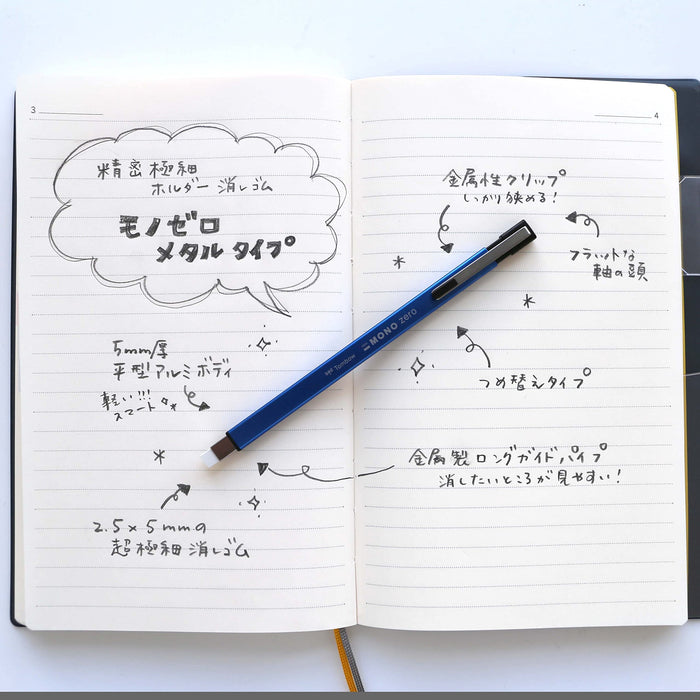 3
精密極細
ホルダー消しゴム
モノゼロ
メタルタイプ
5mm厚
平型アルミボディ
軽い!!!
スマート
2.5×5mmの
超極細消しゴム
4
金属性クリップ
しっかり挟める!
フラットな
軸の頭
Tombow MONO zero
つめ替えタイプ
金属製ロングガイドパイプ
消したいところが見やすい!